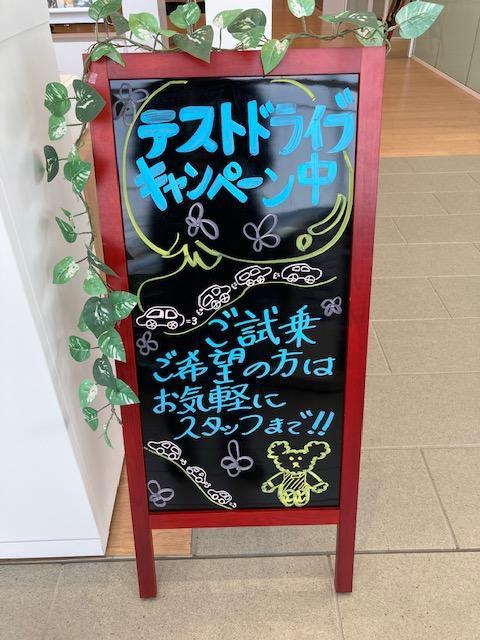 テストドライブ
キャンペーン中
ご試乗
ご希望の方は
お気軽に
スタッフまで!!